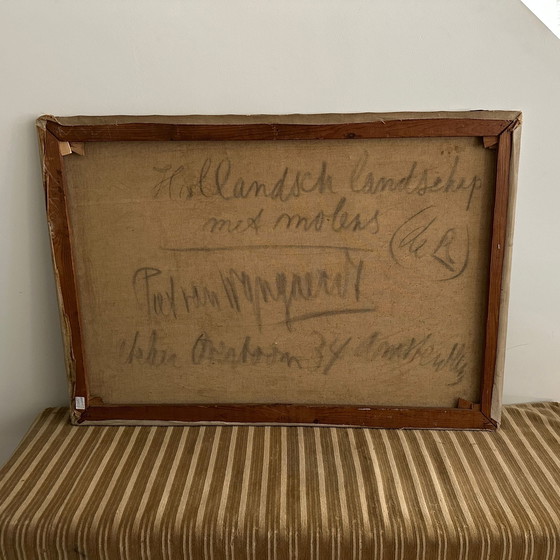 Hollandsch landschap
met molens
(de R)
Piet van Wijngaerdt
34